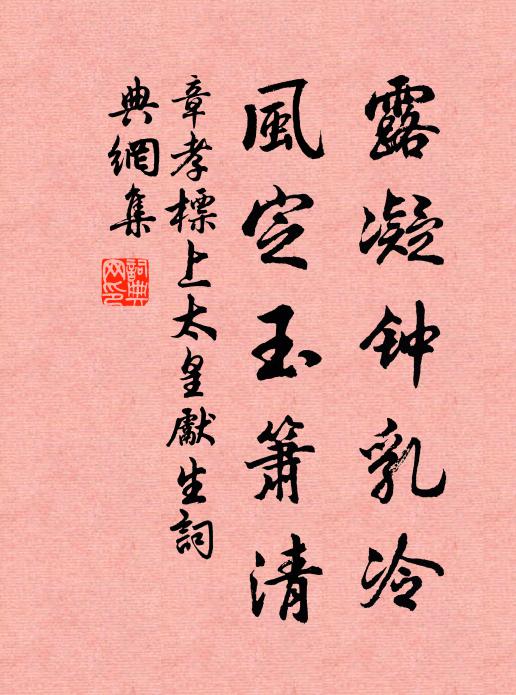 露凝钟乳冷
風定玉簫清
章孝標上太皇獻生詞
典網集
詞典
网印